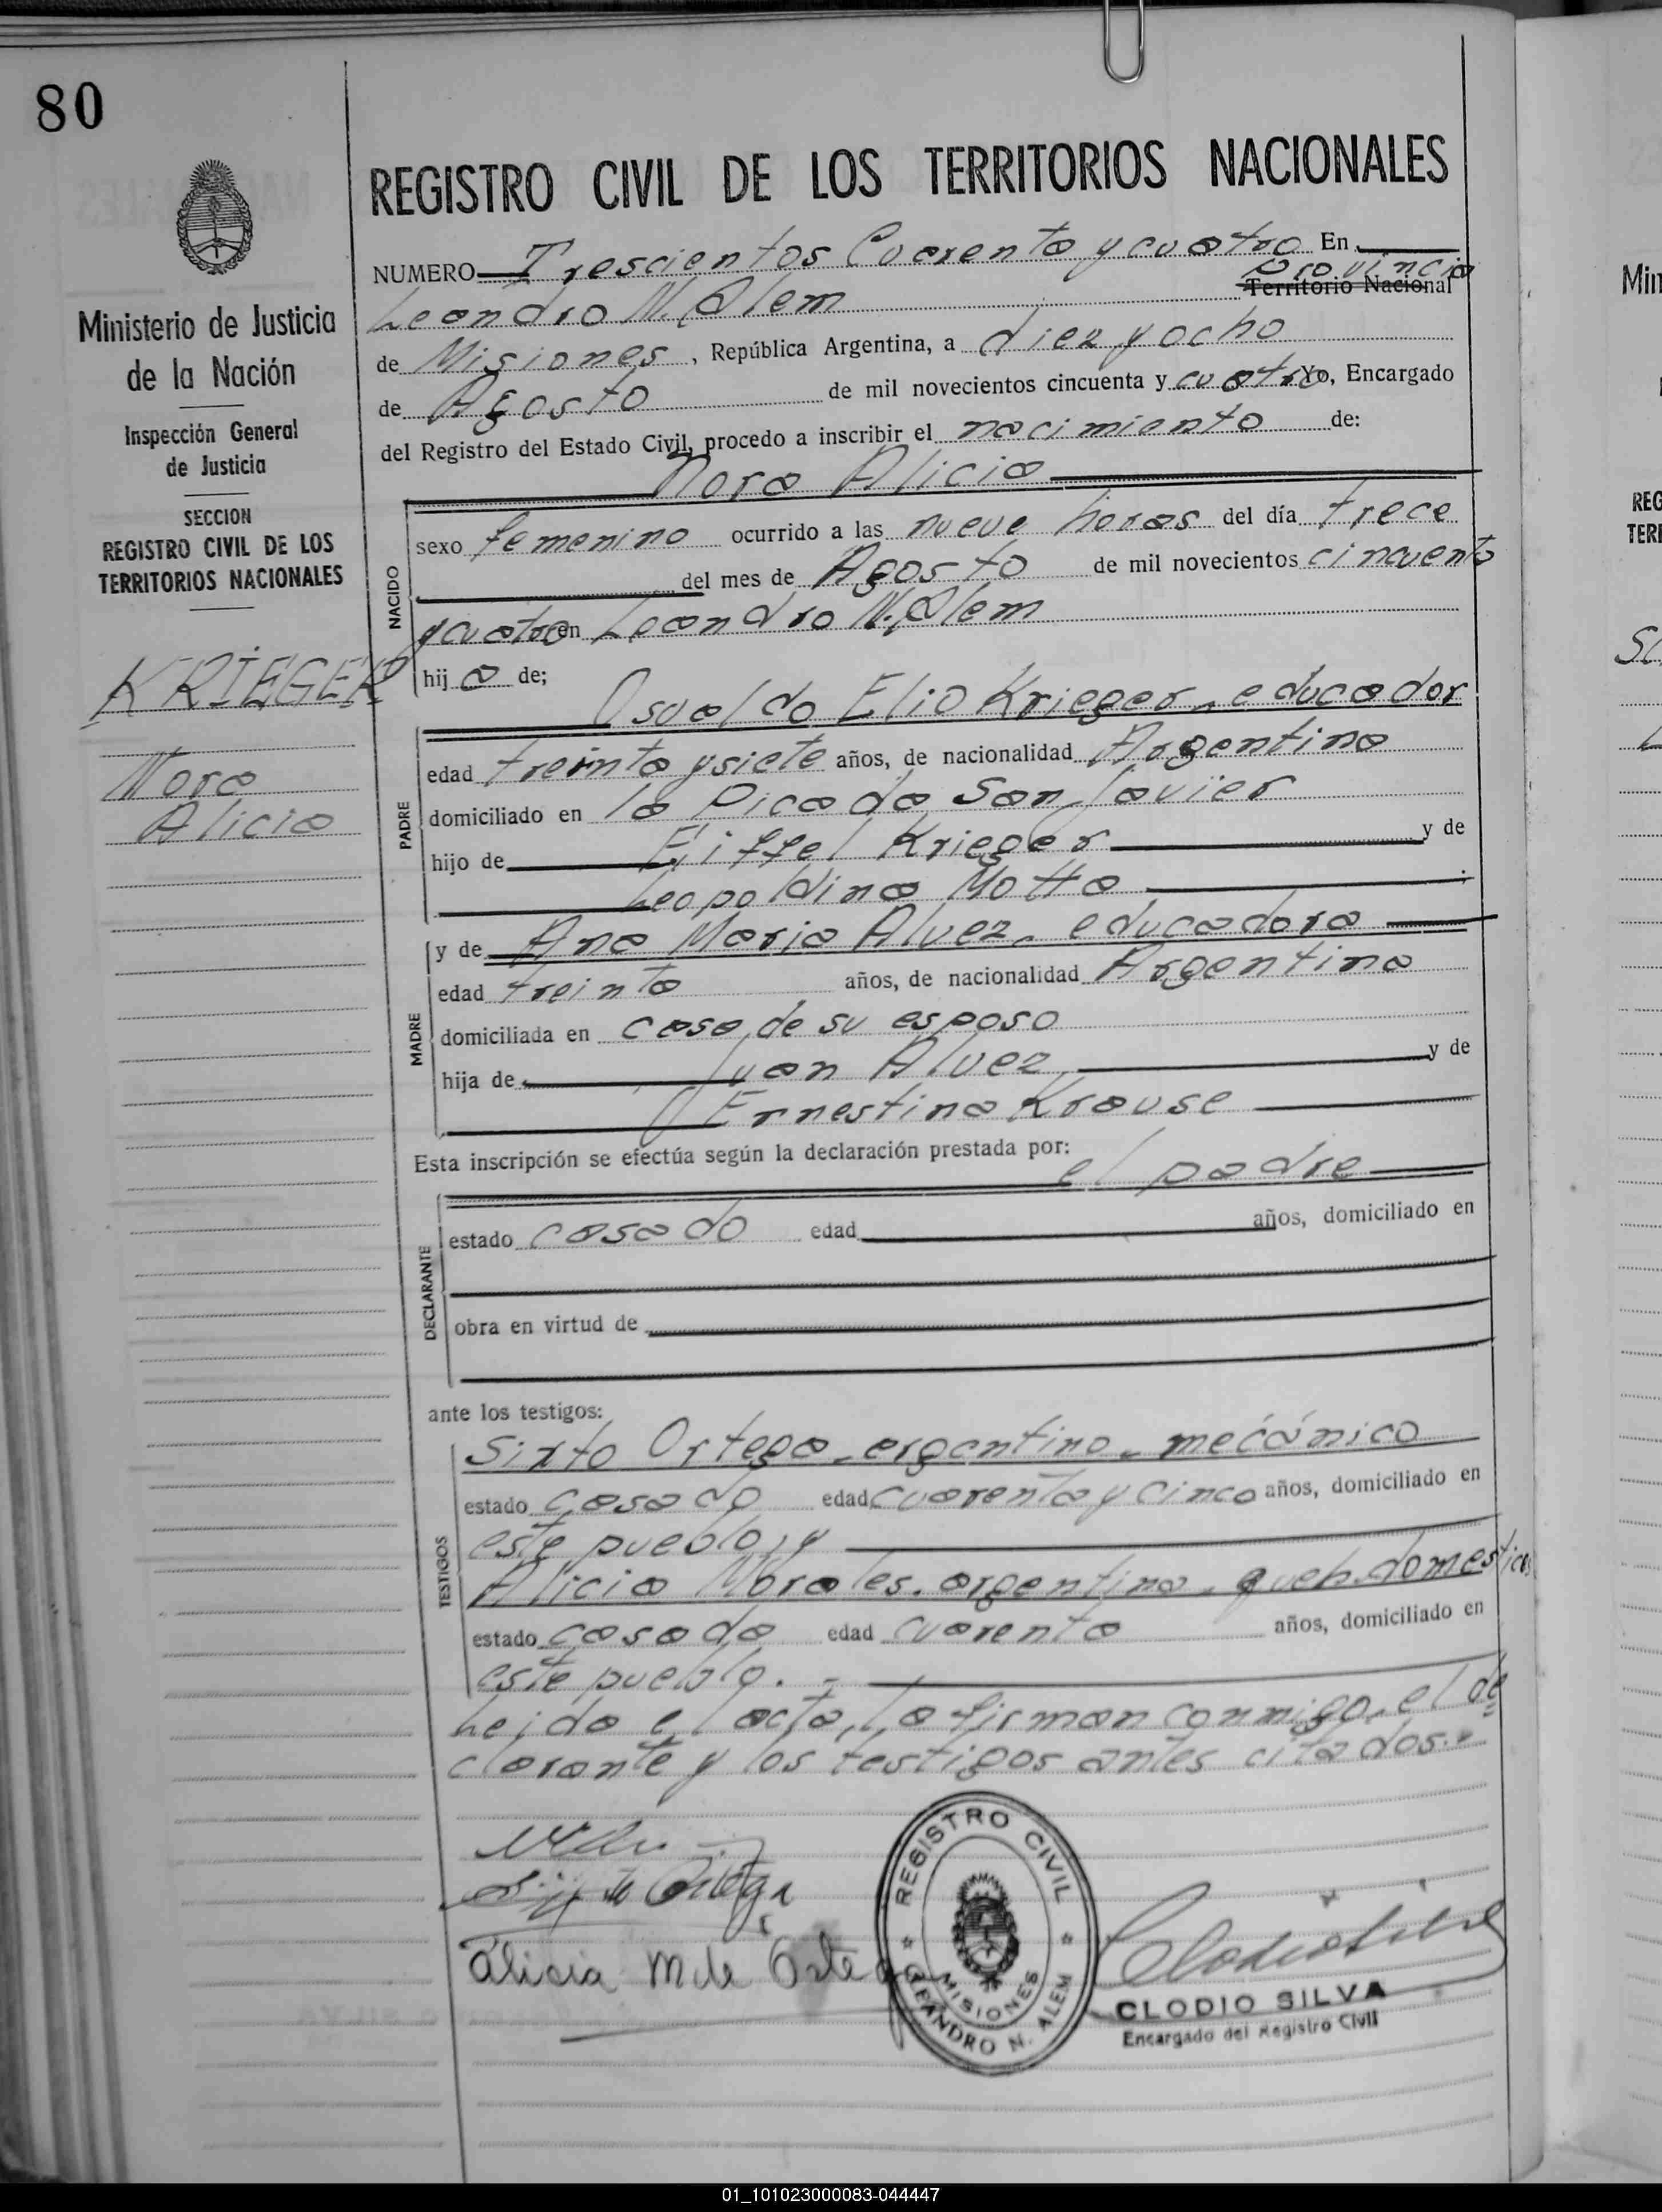 80
REGISTRO CIVIL DE LOS TERRITORIOS NACIONALES
NUMERO Trescientos Cuarenta y cuatro En
Provincia
Leandro N. Alem Territorio Nacional
de Misiones, República Argentina, a diez y ocho
de Agosto de mil novecientos cincuenta y cuatro Yo, Encargado
del Registro del Estado Civil, procedo a inscribir el nacimiento de:
Nora Alicia
NACIDO
sexo femenino ocurrido a las nueve horas del día trece
del mes de Agosto de mil novecientos cincuenta
y cuatro en Leandro N. Alem
hij a de;
Osvaldo Elio Krieger - educador
PADRE
edad treinta y siete años, de nacionalidad Argentina
domiciliado en la Picada San Javier
hijo de Eiffel Krieger y de
Leopoldina Motta
y de Ana Maria Alvez - educadora
MADRE
edad treinta años, de nacionalidad Argentina
domiciliada en casa de su esposo
hija de Juan Alvez y de
Ernestina Krause
Esta inscripción se efectúa según la declaración prestada por:
el padre
DECLARANTE
estado casado edad años, domiciliado en
obra en virtud de
ante los testigos:
TESTIGOS
Sixto Ortega - argentino - mecánico
estado casado edad cuarenta y cinco años, domiciliado en
este pueblo, y
Alicia Morales - argentina - queh. domesticos
estado casada edad cuarenta años, domiciliado en
este pueblo. -
Leida el acta, la firman conmigo, el de
clarante y los testigos antes citados.-
Sixto Ortega
Alicia M de Ortega
REGISTRO CIVIL
MISIONES
LEANDRO N. ALEM
Clodio Silva
CLODIO SILVA
Encargado del Registro Civil
Ministerio de Justicia
de la Nación
Inspección General
de Justicia
SECCION
REGISTRO CIVIL DE LOS
TERRITORIOS NACIONALES
KRIEGER
Nora
Alicia
Min
REG
TER
01_101023000083-044447